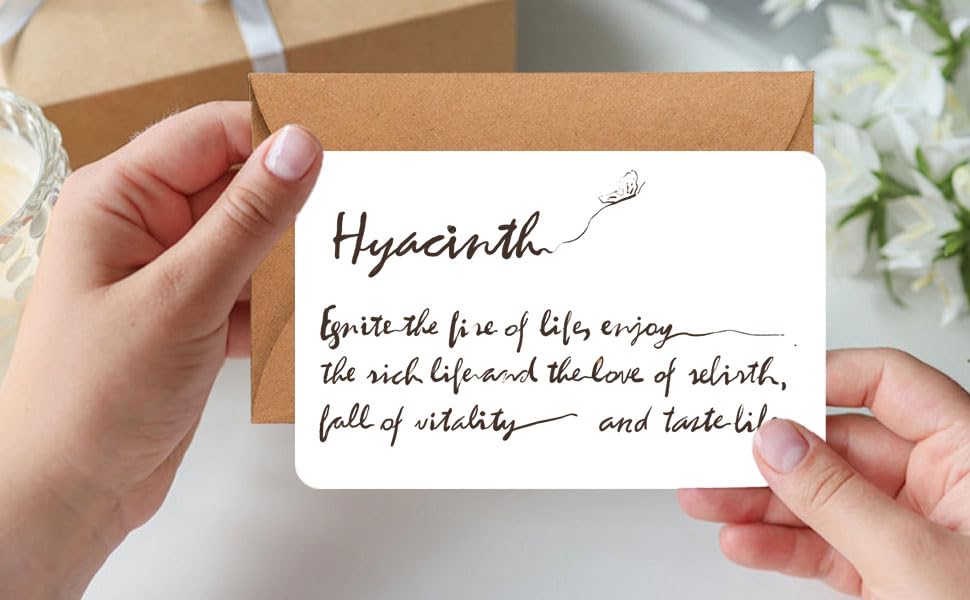 Hyacinth
Ignite the fire of life, enjoy
the rich life and the love of rebirth,
fall of vitality and taste